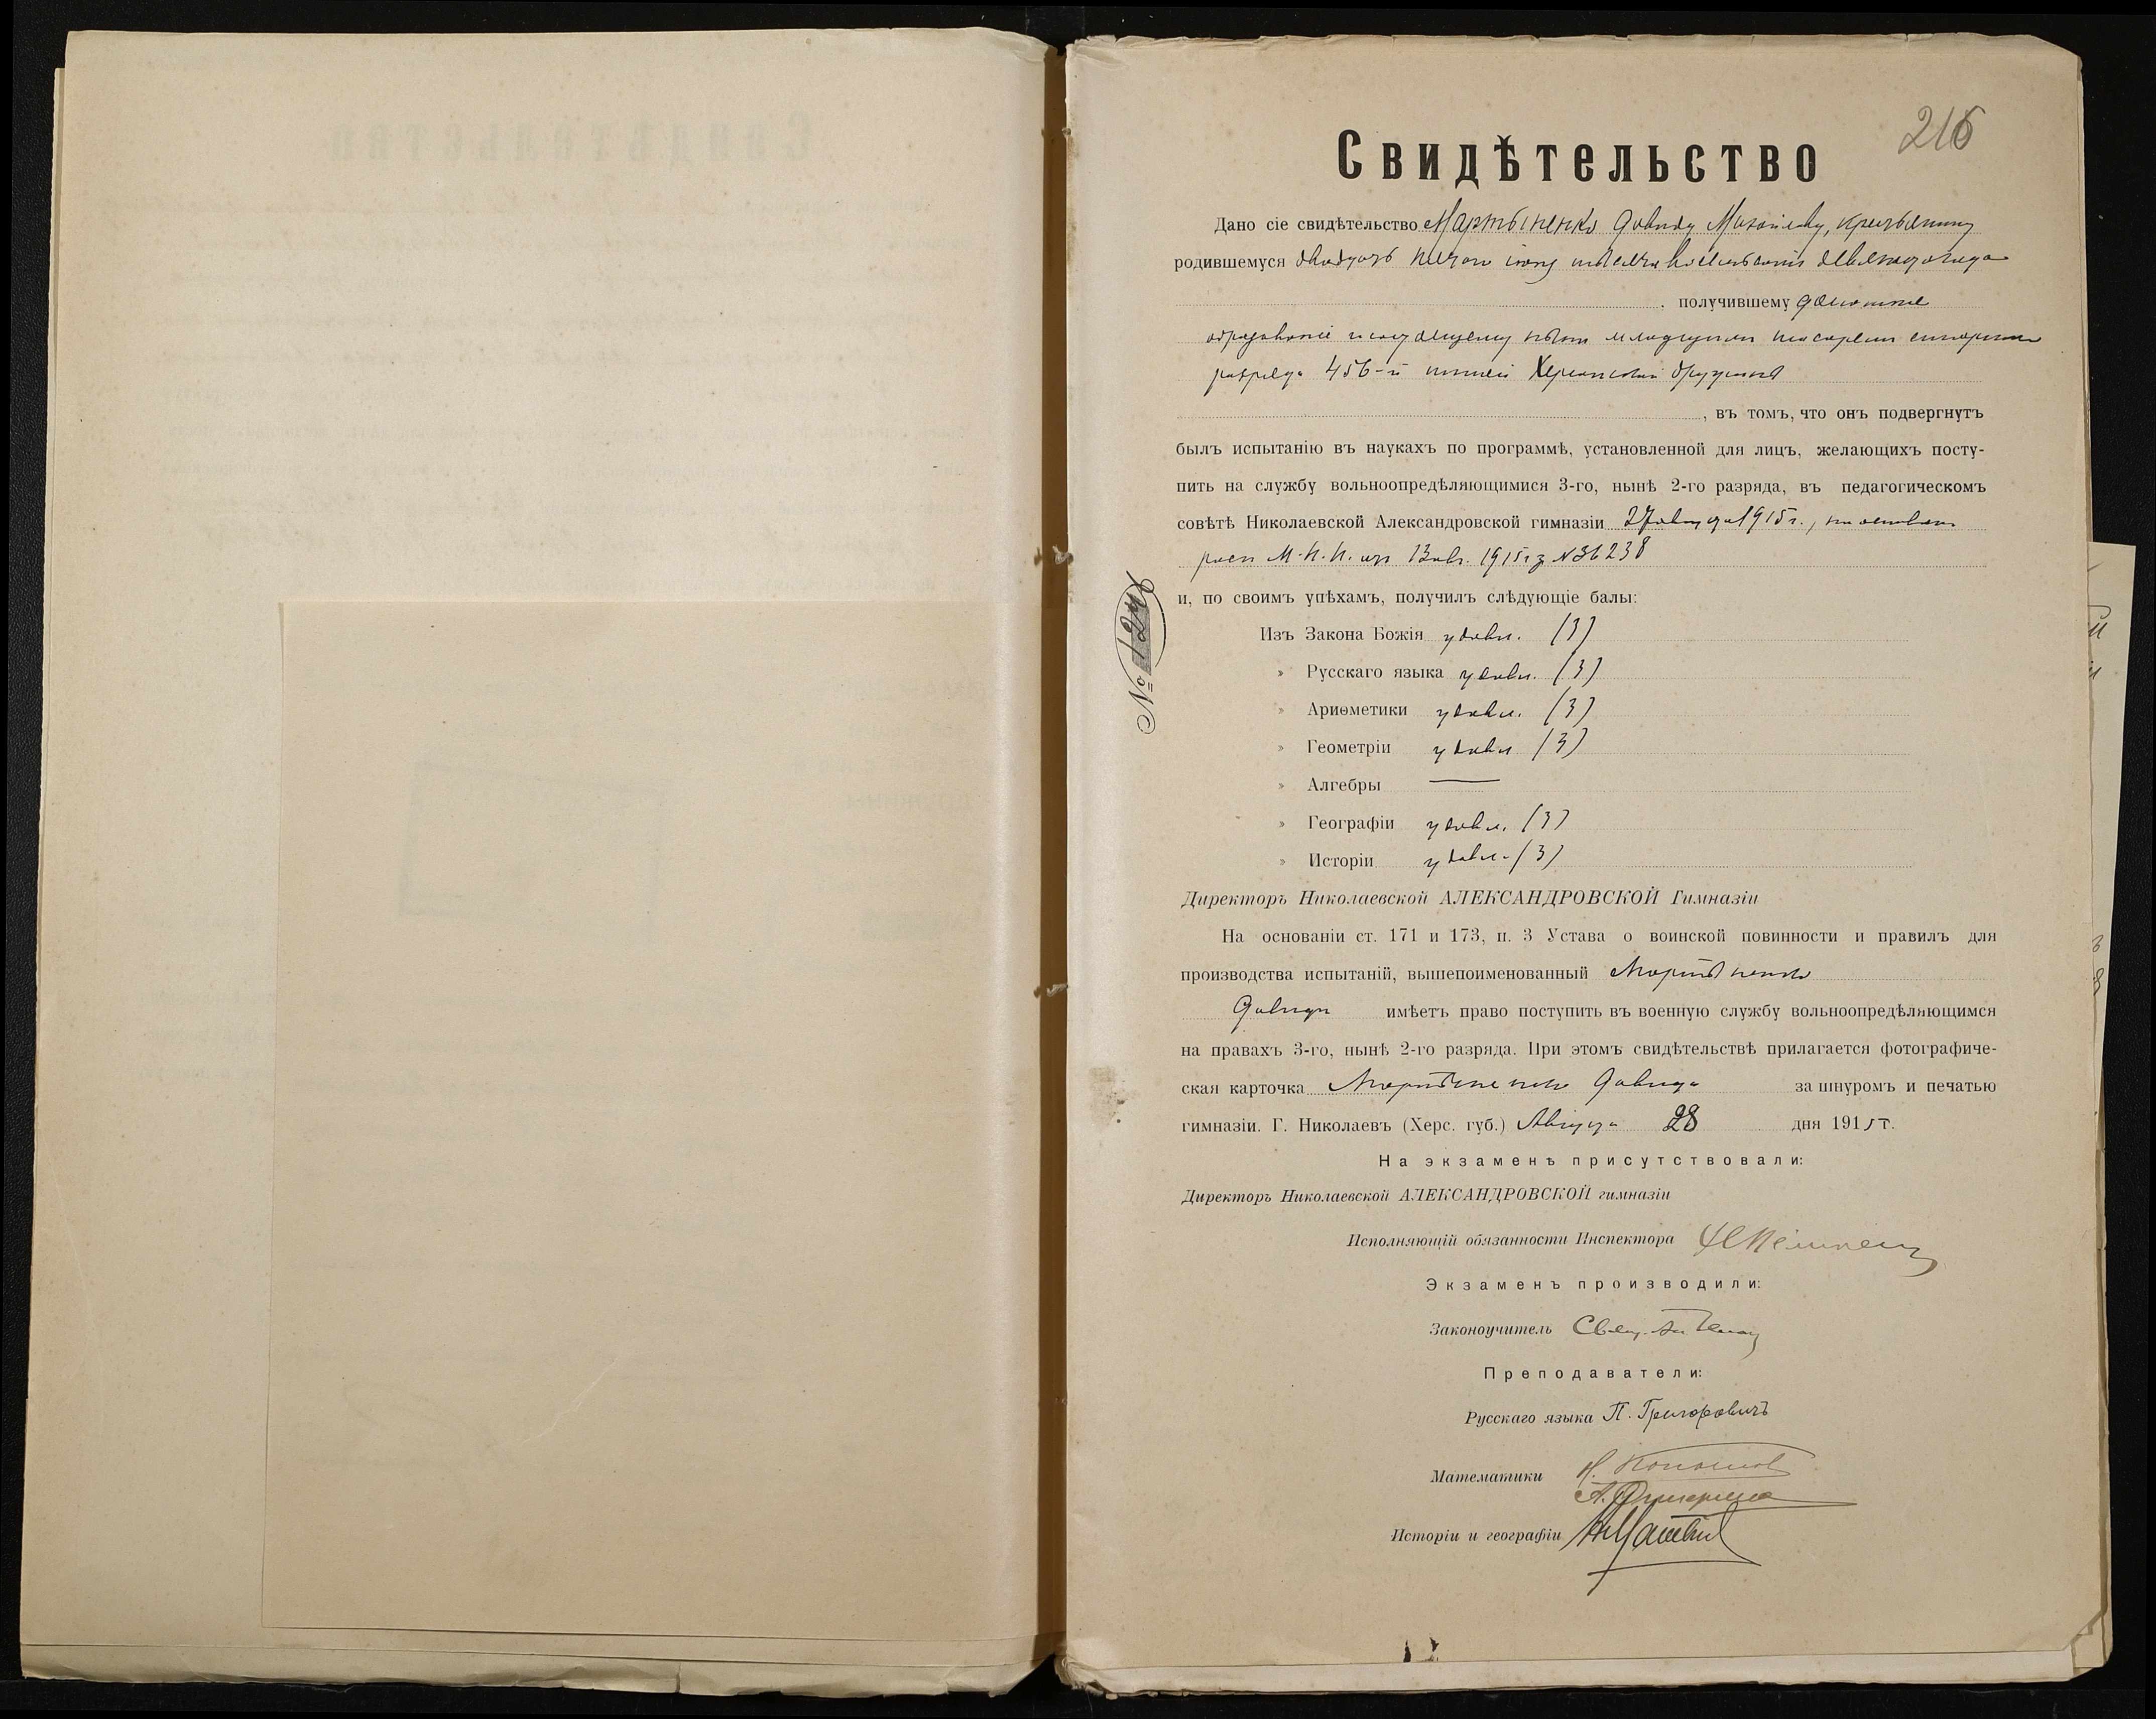 216
Свидѣтельство
Дано сіе свидѣтельство Мартыненко Давиду Михайлову, крестьянину
родившемуся двадцать пятаго іюня тысяча восемьсотъ
получившему домашнее
образованіе и состоящему нынѣ младшимъ писаремъ
разряда 456-й пѣшей Херсонской дружины
, въ томъ, что онъ подвергнутъ
былъ испытанію въ наукахъ по программѣ, установленной для лицъ, желающихъ посту-
пить на службу вольноопредѣляющимися 3-го, нынѣ 2-го разряда, въ педагогическомъ
совѣтѣ Николаевской Александровской гимназіи 27 августа 1915 г., на основан.
расп М. Н. П. отъ 13 авг. 1915 г з № 36238
№ 1246
и, по своимъ упѣхамъ, получилъ слѣдующіе балы:
Изъ Закона Божія удовл. (3)
» Русскаго языка удовл. (3)
» Ариѳметики удовл. (3)
» Геометріи удовл (3)
» Алгебры —
» Географіи удовл. (3)
» Исторіи удовл. (3)
Директоръ Николаевской АЛЕКСАНДРОВСКОЙ Гимназіи
На основаніи ст. 171 и 173, п. 3 Устава о воинской повинности и правилъ для
производства испытаній, вышепоименованный Мартыненко
Давидъ имѣетъ право поступить въ военную службу вольноопредѣляющимся
на правахъ 3-го, нынѣ 2-го разряда. При этомъ свидѣтельствѣ прилагается фотографиче-
ская карточка Мартыненко Давида за шнуромъ и печатью
гимназіи. Г. Николаевъ (Херс. губ.) Августа 28 дня 1915 г.
На экзаменѣ присутствовали:
Директоръ Николаевской АЛЕКСАНДРОВСКОЙ гимназіи
Исполняющій обязанности Инспектора
Экзаменъ производили:
Законоучитель Свящ.
Преподаватели:
Русскаго языка П. Григоровичъ
Математики
Исторіи и географіи